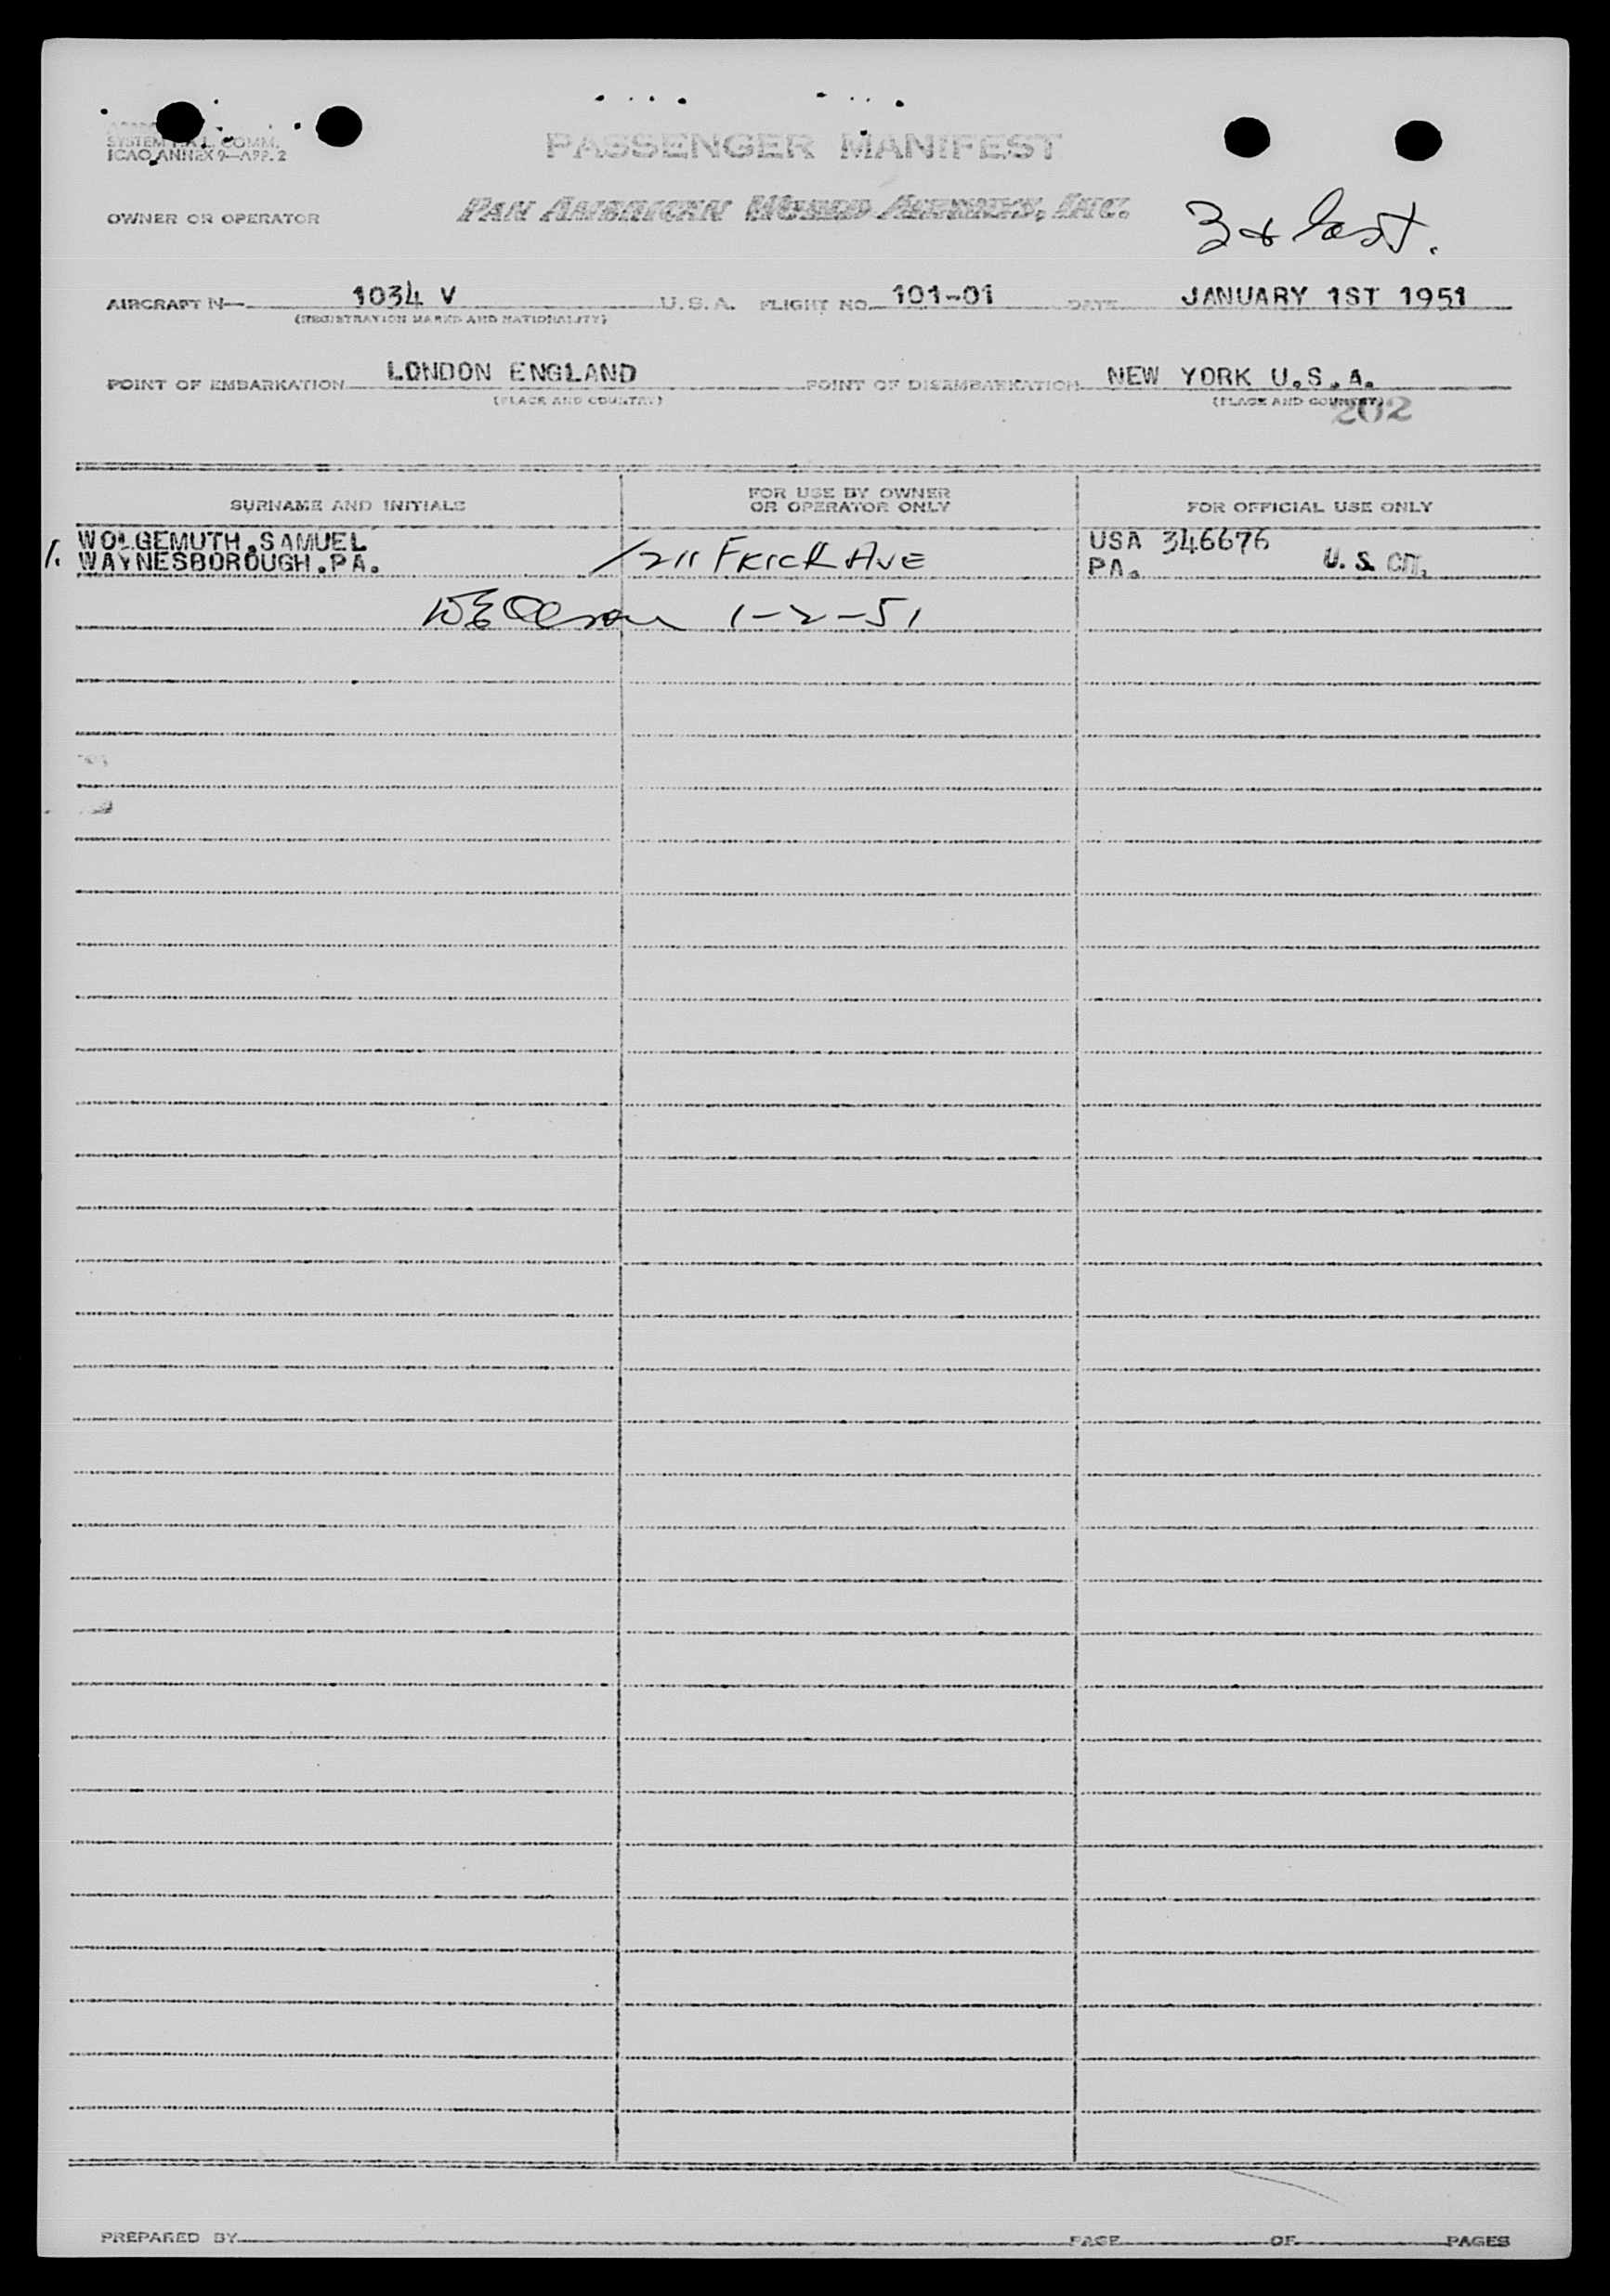 SYSTEM
COMM.
ICAO ANNEX 9—APP. 2
PASSENGER MANIFEST
OWNER OR OPERATOR
PAN AMERICAN WORLD AIRWAYS, INC.
3 & last.
AIRCRAFT N— 1034 V U.S.A. FLIGHT NO. 101-01 DATE JANUARY 1ST 1951
(REGISTRATION MARKS AND NATIONALITY)
POINT OF EMBARKATION LONDON ENGLAND POINT OF DISEMBARKATION NEW YORK U.S.A.
(PLACE AND COUNTRY) (PLACE AND COUNTRY)
202
SURNAME AND INITIALS
FOR USE BY OWNER
OR OPERATOR ONLY
FOR OFFICIAL USE ONLY
1. WOLGEMUTH.SAMUEL
WAYNESBOROUGH.PA.
211 FRICK AVE
USA 346676
PA. U.S. CIT.
1-2-51
PREPARED BY PAGE OF PAGES